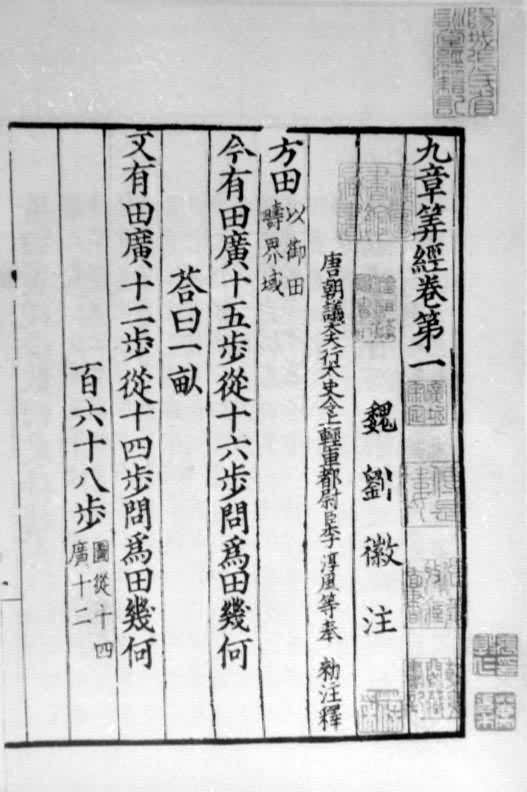 九章筭經卷第一
魏劉徽注
唐朝議大夫行太史令上輕車都尉臣李淳風等奉 勑注釋
方田以御田疇界域
今有田廣十五步從十六步問爲田幾何
荅曰一畝
又有田廣十二步從十四步問爲田幾何
百六十八步圖從十四廣十二